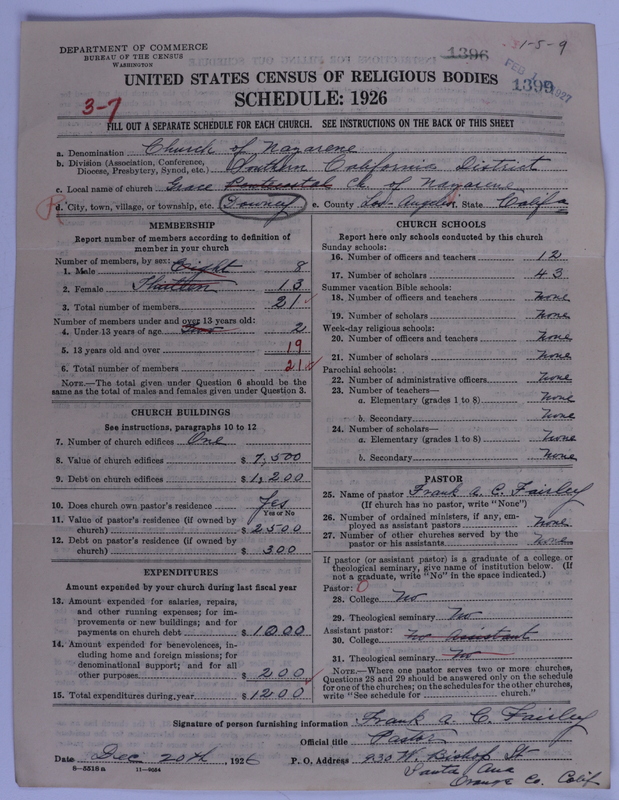 DEPARTMENT OF COMMERCE
BUREAU OF THE CENSUS
WASHINGTON
1396
31-5-9
FEB 1 1927
1399
UNITED STATES CENSUS OF RELIGIOUS BODIES
SCHEDULE: 1926
3-7
FILL OUT A SEPARATE SCHEDULE FOR EACH CHURCH. SEE INSTRUCTIONS ON THE BACK OF THIS SHEET
a. Denomination Church of Nazarene
b. Division (Association, Conference, Diocese, Presbytery, Synod, etc.) Southern California District
c. Local name of church Grace Pentecostal Ch. of Nazarene
d. City, town, village, or township, etc. Downey e. County Los Angeles State Calif
MEMBERSHIP
Report number of members according to definition of
member in your church
Number of members, by sex:
1. Male Eight 8
2. Female Thirteen 13
3. Total number of members 21
Number of members under and over 13 years old:
4. Under 13 years of age Two 2
5. 13 years old and over 19
6. Total number of members 21
NOTE.—The total given under Question 6 should be the
same as the total of males and females given under Question 3.
CHURCH BUILDINGS
See instructions, paragraphs 10 to 12
7. Number of church edifices One
8. Value of church edifices $ 7,500
9. Debt on church edifices $ 1,200
10. Does church own pastor's residence Yes
Yes or No
11. Value of pastor's residence (if owned by
church) $ 2500
12. Debt on pastor's residence (if owned by
church) $ 300
EXPENDITURES
Amount expended by your church during last fiscal year
13. Amount expended for salaries, repairs,
and other running expenses; for im-
provements or new buildings; and for
payments on church debt $ 1000
14. Amount expended for benevolences, in-
cluding home and foreign missions; for
denominational support; and for all
other purposes $ 200
15. Total expenditures during year $ 1200
CHURCH SCHOOLS
Report here only schools conducted by this church
Sunday schools:
16. Number of officers and teachers 12
17. Number of scholars 43
Summer vacation Bible schools:
18. Number of officers and teachers None
19. Number of scholars None
Week-day religious schools:
20. Number of officers and teachers None
21. Number of scholars None
Parochial schools:
22. Number of administrative officers None
23. Number of teachers—
a. Elementary (grades 1 to 8) None
b. Secondary None
24. Number of scholars—
a. Elementary (grades 1 to 8) None
b. Secondary None
PASTOR
25. Name of pastor Frank A. C. Fairley
(If church has no pastor, write "None")
26. Number of ordained ministers, if any, em-
ployed as assistant pastors None
27. Number of other churches served by the
pastor or his assistants None
If pastor (or assistant pastor) is a graduate of a college or
theological seminary, give name of institution below. (If
not a graduate, write "No" in the space indicated.)
Pastor: 0
28. College No
29. Theological seminary No
Assistant pastor:
30. College No Assistant
31. Theological seminary No
NOTE.—Where one pastor serves two or more churches,
Questions 28 and 29 should be answered only on the schedule
for one of the churches; on the schedules for the other churches,
write "See schedule for church."
Signature of person furnishing information Frank A. C. Fairley
Official title Pastor
Date Dec 20th, 1926 P. O. Address 930 W. Bishop St
Santa Ana
Orange Co. Calif
8—5518a 11—9054